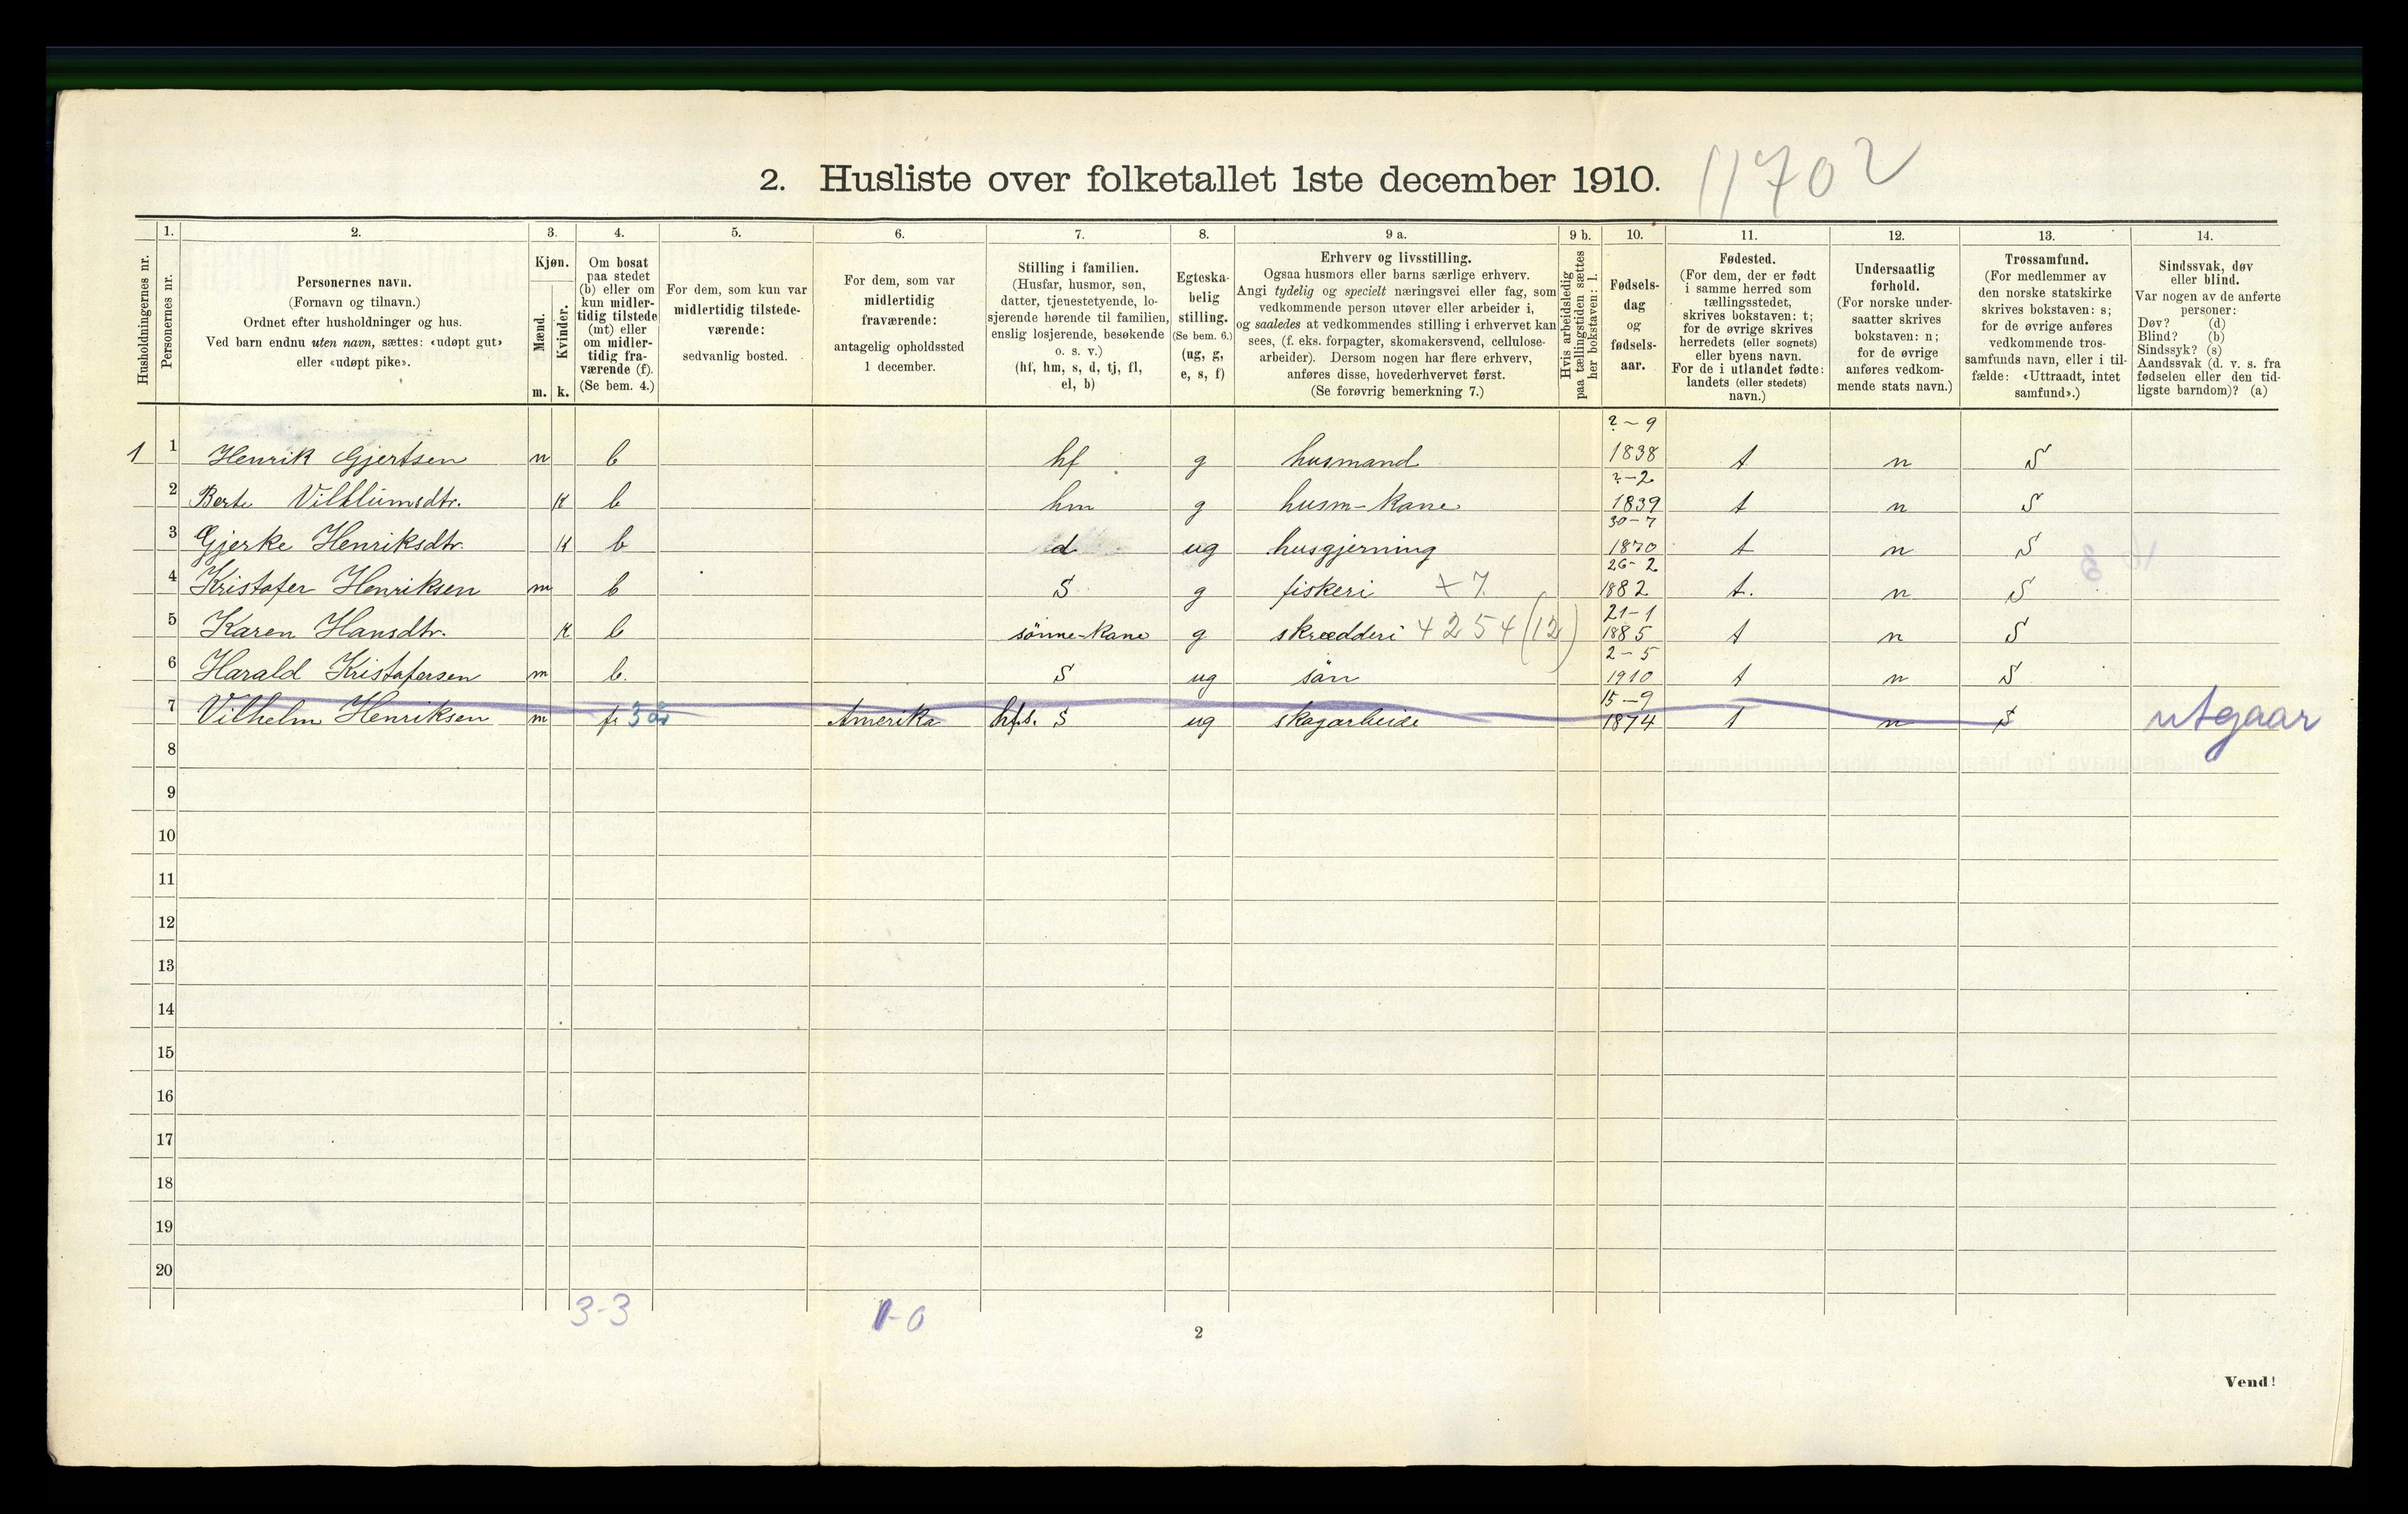 2. Husliste over folketallet 1ste december 1910. 11702
Husholdningernes nr.
1. Personernes nr.
2. Personernes navn.
(Fornavn og tilnavn.)
Ordnet efter husholdninger og hus.
Ved barn endnu uten navn, sættes: «udøpt gut»
eller «udøpt pike».
3. Kjøn.
Mænd. m.
Kvinder. k.
4. Om bosat
paa stedet
(b) eller om
kun midler-
tidig tilstede
(mt) eller
om midler-
tidig fra-
værende (f).
(Se bem. 4.)
5. For dem, som kun var
midlertidig tilstede-
værende:
sedvanlig bosted.
6. For dem, som var
midlertidig
fraværende:
antagelig opholdssted
1 december.
7. Stilling i familien.
(Husfar, husmor, søn,
datter, tjenestetyende, lo-
sjerende hørende til familien,
enslig losjerende, besøkende
o. s. v.)
(hf, hm, s, d, tj, fl,
el, b)
8. Egteska-
belig
stilling.
(Se bem. 6.)
(ug, g,
e, s, f)
9 a. Erhverv og livsstilling.
Ogsaa husmors eller barns særlige erhverv.
Angi tydelig og specielt næringsvei eller fag, som
vedkommende person utøver eller arbeider i,
og saaledes at vedkommendes stilling i erhvervet kan
sees, (f. eks. forpagter, skomakersvend, cellulose-
arbeider). Dersom nogen har flere erhverv,
anføres disse, hovederhvervet først.
(Se forøvrig bemerkning 7.)
9 b. Hvis arbeidsledig
paa tællingstiden sættes
her bokstaven: l.
10. Fødsels-
dag
og
fødsels-
aar.
11. Fødested.
(For dem, der er født
i samme herred som
tællingsstedet,
skrives bokstaven: t;
for de øvrige skrives
herredets (eller sognets)
eller byens navn.
For de i utlandet fødte:
landets (eller stedets)
navn.)
12. Undersaatlig
forhold.
(For norske under-
saatter skrives
bokstaven: n;
for de øvrige
anføres vedkom-
mende stats navn.)
13. Trossamfund.
(For medlemmer av
den norske statskirke
skrives bokstaven: s;
for de øvrige anføres
vedkommende tros-
samfunds navn, eller i til-
fælde: «Uttraadt, intet
samfund».)
14. Sindssvak, døv
eller blind.
Var nogen av de anførte
personer:
Døv? (d)
Blind? (b)
Sindssyk? (s)
Aandssvak (d. v. s. fra
fødselen eller den tid-
ligste barndom)? (a)
1 1 Henrik Gjertsen m b hf g husmand ?-9 1838 t n S
2 Berte k b hm g husm-kone ?-2 1839 t n S
3 Gjerke Henriksdtr. k b d ug husgjerning 30-7 1870 t n S
4 Kristofer Henriksen m b S g fiskeri +7 26-2 1882 t. n S
5 Karen Hansdtr. k b sønne-kone g skrædderi 4254 (12) 21-1 1885 t n S
6 Harald Kristofersen m b. S ug søn 2-5 1910 t n S
7 Vilhelm Henriksen m f. 3 år Amerika hf.s. S ug skogarbeide 15-9 1874 t n S utgaar
8
9
10
11
12
13
14
15
16
17
18
19
20
3-3 1-0
2
Vend!